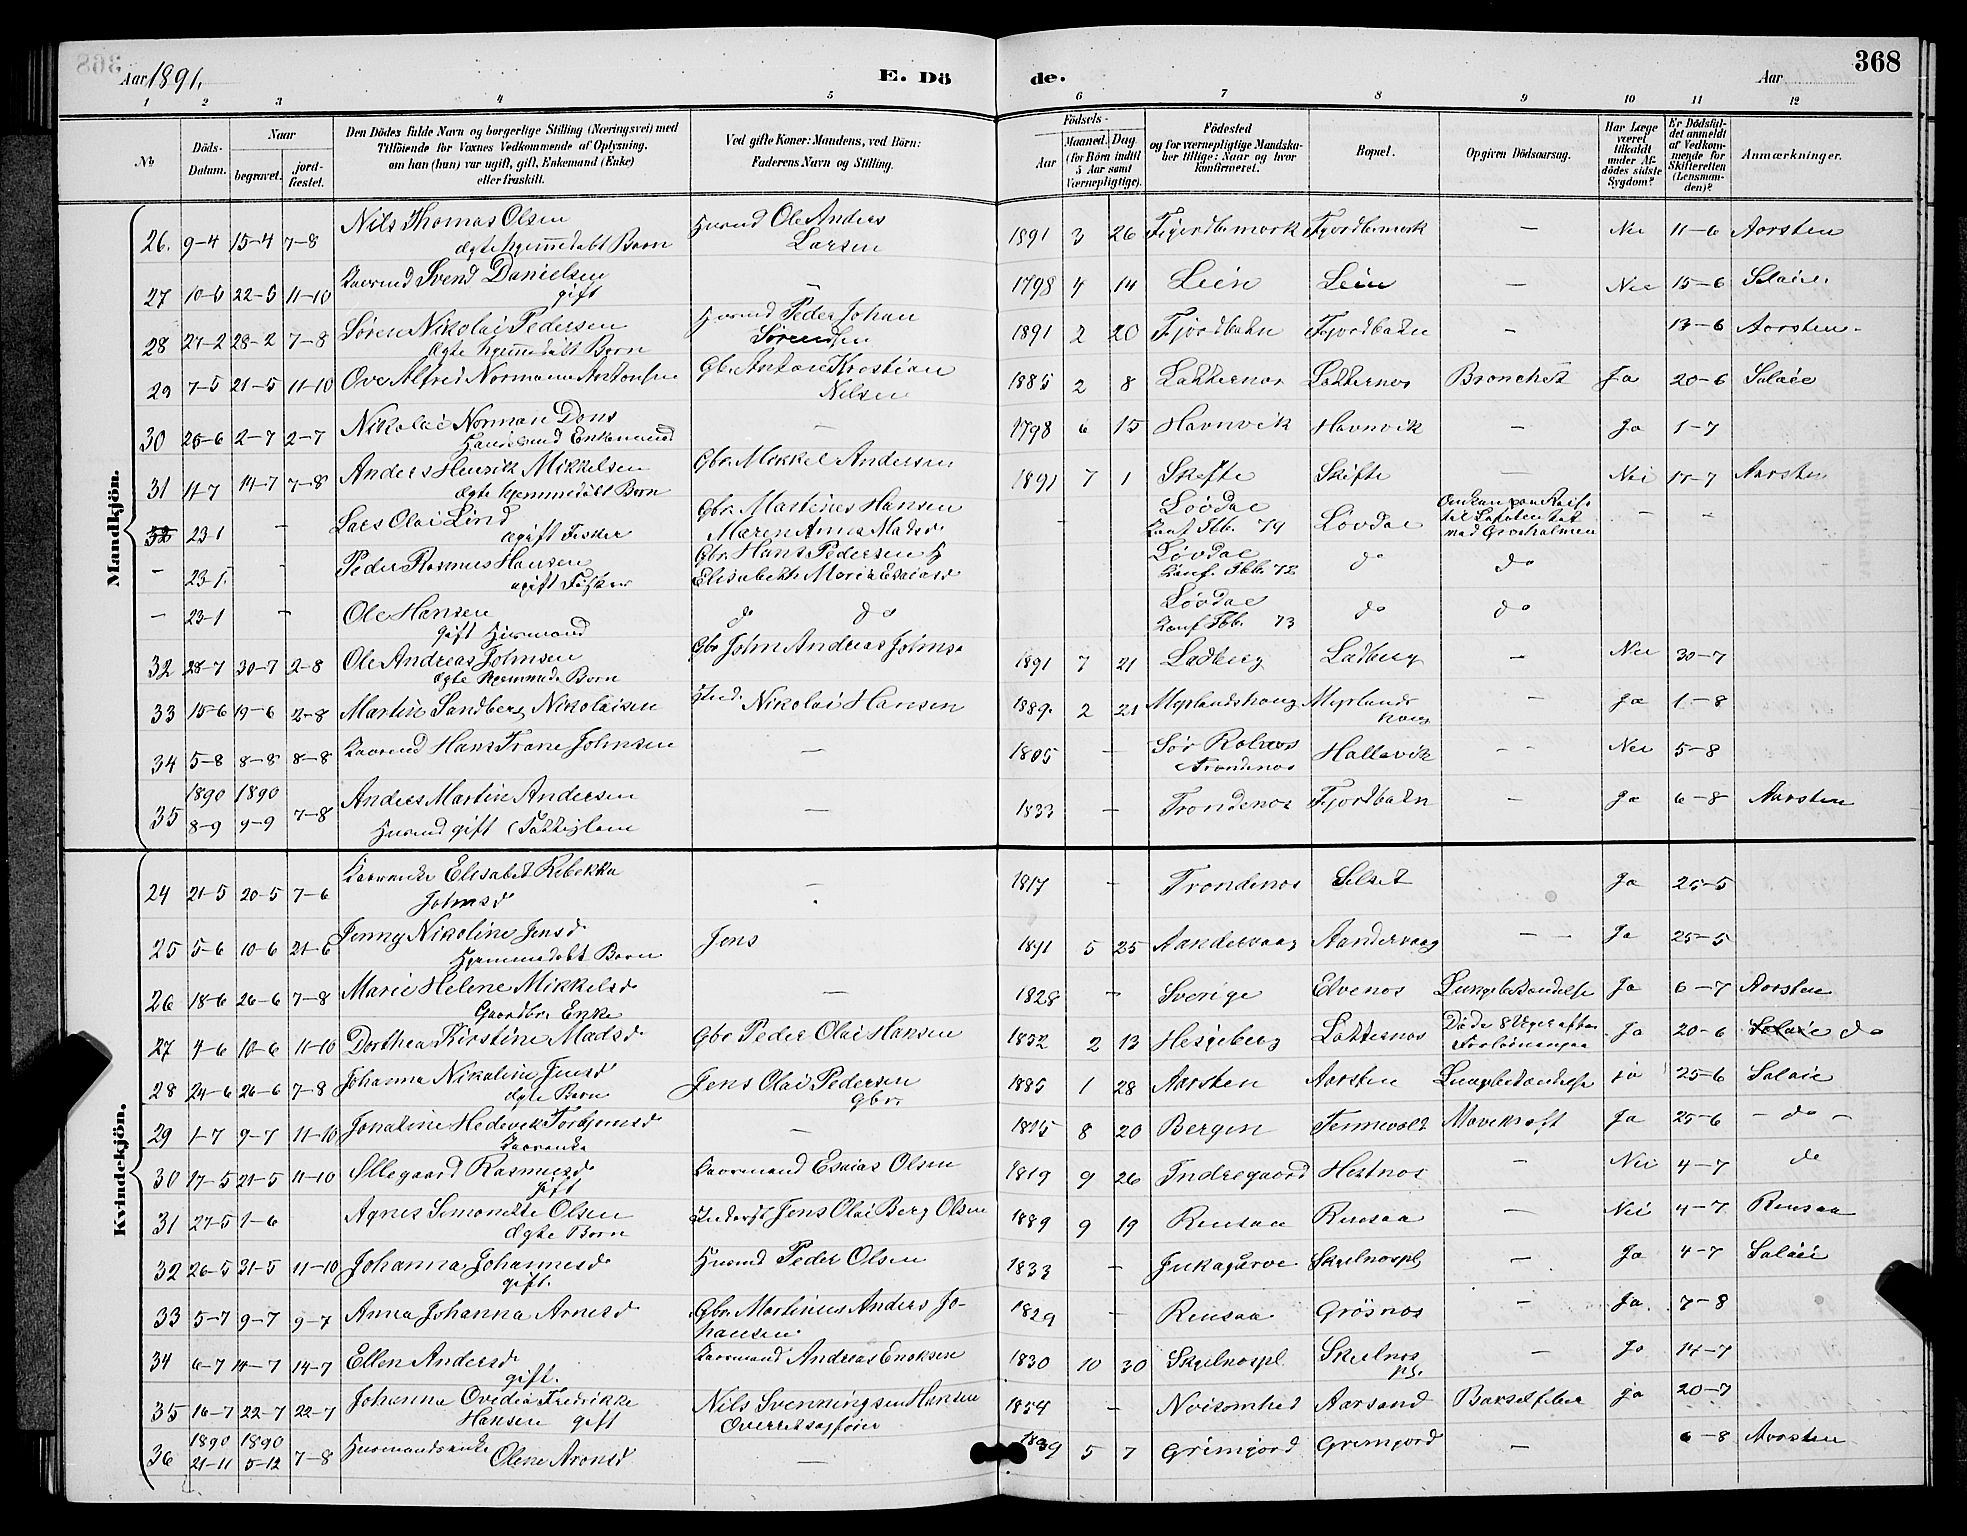 368
Aar 1891.
E. Dö
de.
Aar
368
1 2 3 4 5 6 7 8 9 10 11 12
No
Döds-Datum.
Naar
begravet.
jord-fæstet.
Den Dödes fulde Navn og borgerlige Stilling (Næringsvei) med
Tilföiende for Voxnes Vedkommende af Oplysning,
om han (hun) var ugift, gift, Enkemand (Enke)
eller fraskilt.
Ved gifte Koner: Mandens, ved Börn:
Faderens Navn og Stilling.
Födsels-
Aar
Maaned. Dag
(for Börn indtil
5 Aar samt
Værnepligtige).
Födested
og for værnepligtige Mandska-
ber tillige: Naar og hvor
konfirmeret.
Bopæl.
Opgiven Dödsaarsag.
Har Læge
været
tilkaldt
under Af-
dödes sidste
Sygdom?
Er Dödsfal-
det anmeldt
af Vedkom-
mende for
Skifteretten
(Lensman-
den)?
Anmærkninger.
Mandkjön.
26. 9-4 15-4 7-8 Nils Thomas Olsen Husmd Ole Anders 1891 3 26 Fjordbemark Fjordbemark — Nei 11-6 Aarsten
ægte hjemmedøbt Barn Larsen
27 10-6 22-6 11-10 Kaarmd Svend Danielsen — 1798 4 14 Lein Lein — Nei 15-6 Salaie
gift
28 27-2 28-2 7-8 Søren Nikolai Pedersen Husmd Peder Johan 1891 2 20 Fjordbakn Fjordbakn — 13-6 Aarsten
ægte hjemmedøbt Barn Sørensen
29 7-5 21-5 11-10 Ove Alfred Normann Antonsen Gbr. Anton Kristian 1885 2 8 Lakkenes Lakkenes Bronchit Ja 20-6 Salaie
Nilsen
30 26-6 2-7 2-7 Nikolai Norman Dons — 1798 6 15 Havnvik Havnvik — Ja 1-7
Handelsmd Enkemand
31 11-7 14-7 7-8 Anders Henrik Mikkelsen Gbr. Mikkel Andersen 1891 7 1 Skefte Skefte — Nei 17-7 Aarsten
ægte hjemmedøbt Barn
32 23-1 - Lars Olai Lind Gbr. Martines Hansen - Løvdal Løvdal Omkom paa Reise - -
ugift Fisker Maren Anna Madsd Konf. Ibb. 74 til Lofoten tæt
ved Grøtholmen
- 23-1 - Peder Rasmus Hansen Gbr. Hans Pedersen Løvdal do do
ugift Fisker Elisabeth Maria Esaiasd Konf. Ibb. 72
- 23-1 - Ole Hansen do do Løvdal do do
gift Husmand Konf Ibb. 73
32 28-7 30-7 2-8 Ole Andreas Johnsen Gbr John Andreas Johnse 1891 7 21 Ladberg Ladberg — Nei 30-7
ægte hjemmedø Barn
33 15-6 19-6 2-8 Martin Sandberg Nikolaisen Nikolai Hansen 1889 2 21 Myrlandshaug Myrlands — Ja 1-8
haug
34 5-8 8-8 8-8 Kaarmd Hans Trane Johnsen — 1805 — Sør Rolnes Hallevik — Nei 5-8
Trondenes
1890 1890
35 8-9 9-9 7-8 Anders Martin Andersen — 1833 — Trondenes Fjordbakn — Ja 6-8 Aarsten
Husmd gift (Fattiglem
Kvindekjön.
24 21-5 20-5 7-6 Kaarenke Elisabet Rebekka — 1817 — Trondenes Selset Ja 25-5
Johnsd
25 5-6 10-6 21-6 Jenny Nikoline Jensd Jens 1891 5 25 Aandervaag Aandervaag — Ja 25-5
Hjemmedøbt Barn
26 18-6 26-6 7-8 Marie Helene Mikkelsd — 1828 — Sverige Elvenes Lungebetændelse Ja 6-7 Aarsten
Gaardbr. Enke
27 4-6 10-6 11-10 Dorthea Kirstine Madsd Gbr Peder Olai Hansen 1832 2 13 Hesjeberg Lakkenes Døde 8 Uger efter Ja 20-6 Salaie do
28 24-6 26-6 7-8 Johanna Nikoline Jensd Jens Olai Pedersen 1885 1 28 Aarsten Aarsten Lungebetændelse ja 25-6 Salaie
ægte Barn Gbr.
29 1-7 9-7 11-10 Jonatine Hedevik Torbjørnsd — 1815 8 20 Bergen Fennevolt Mavekræft Ja 25-6 - do -
Kaarenke
30 17-5 21-5 11-10 Øllegaard Rasmusd Kaarmand Esaias Olsen 1819 9 26 Indregaard Hestnes — Nei 4-7 do
gift
31 27-5 1-6 Agnes Simonette Olsen Inderst Jens Olai Berg Olsen 1889 9 19 Rensaa Rensaa — Nei 4-7 Rensaa
ægte Barn
32 26-5 31-5 11-10 Johanna Johannesd Husmd Peder Olsen 1833 — Jukagurve Skjelnespl — Ja 4-7 Salaie
gift.
33 5-7 9-7 9-7 Anna Johanna Arnesd Gbr. Martinus Anders Jo- 1829 — Rensaa Grøsnes — Ja. 7-8
hansen.
34 6-7 14-7 14-7 Ellen Andersd Kaarmand Andreas Enoksen 1830 10 30 Skjelnespl Skjelnes — Ja 14-7
gift. pl.
35 16-7 22-7 22-7 Johanna Ovidia Fredrikke Nils Svenningsen Hansen 1854 — Noisomhed Aarsand Barselfeber ja 20-7
Hansen gift Overretsagfører
1890 1890
36 21-11 5-12 7-8 Husmandsenke 1839 5 7 Grimjord Grimjord — 6-8 Aarsten
Oline Aronsd —